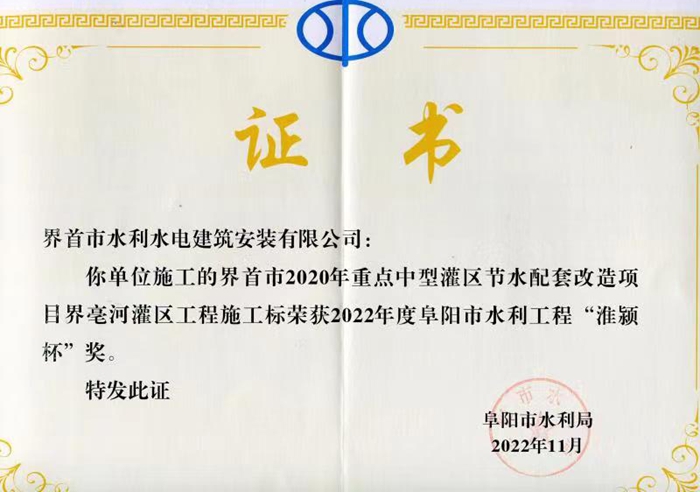 证 书
界首市水利水电建筑安装有限公司：
你单位施工的界首市2020年重点中型灌区节水配套改造项
目界亳河灌区工程施工标荣获2022年度阜阳市水利工程“淮颍
杯”奖。
特发此证
市水
阜阳市水利局
2022年11月